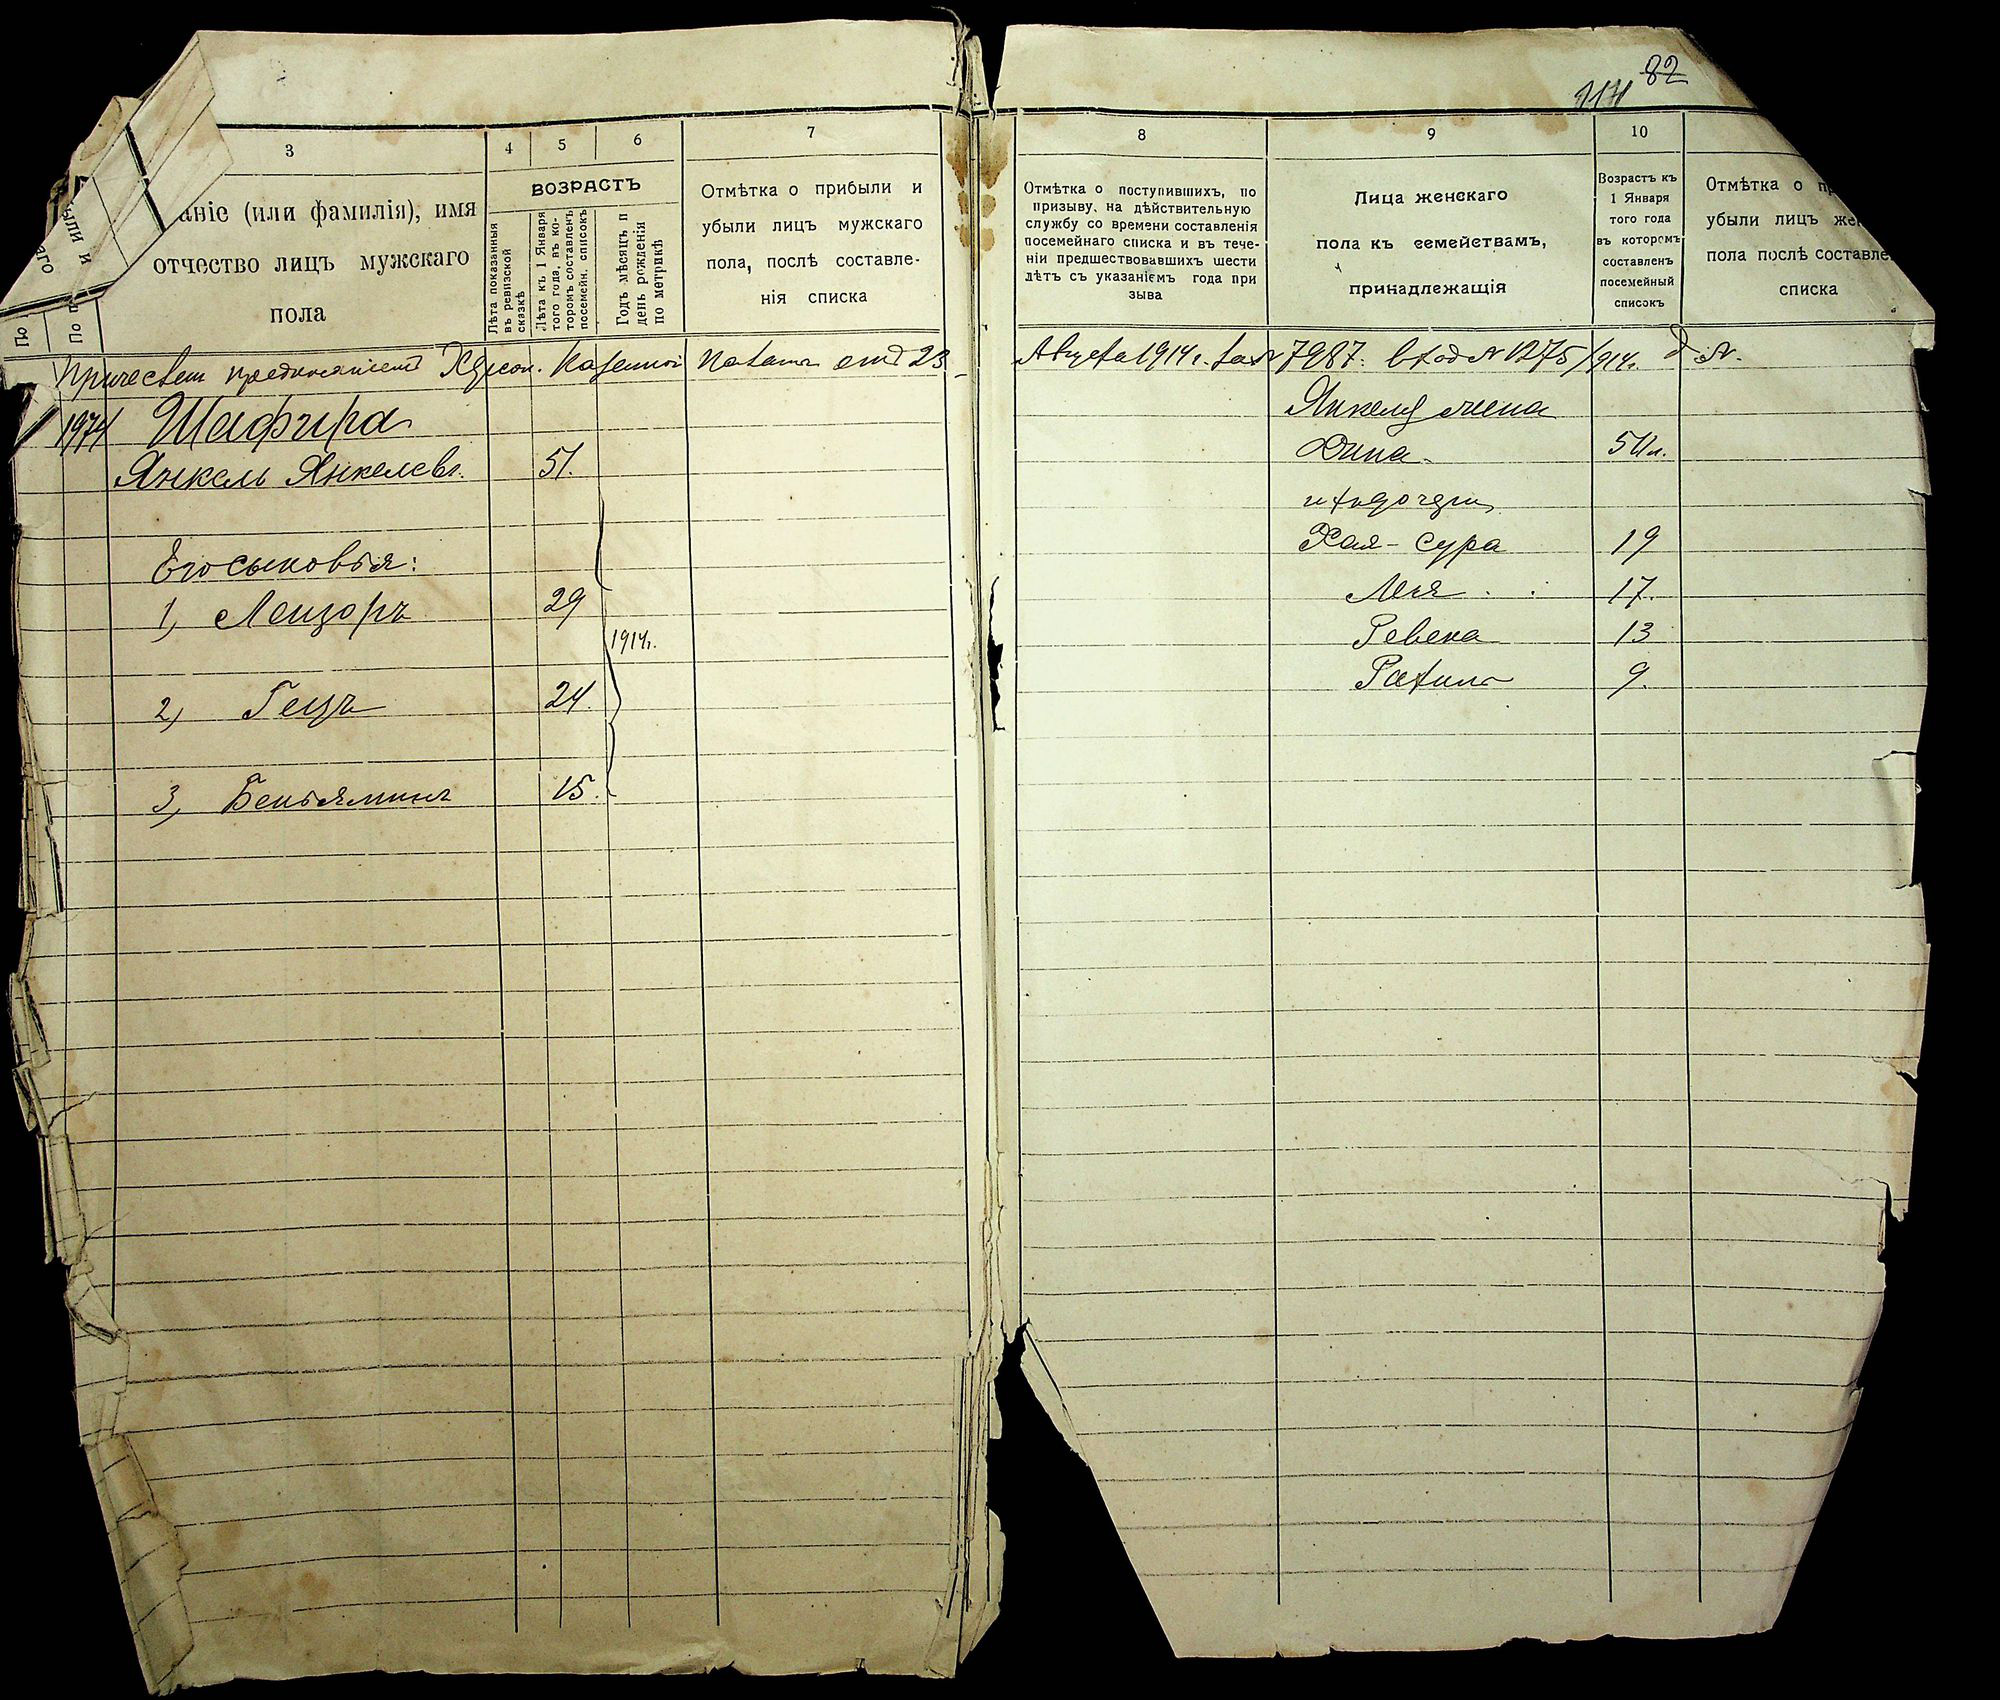 82
3
4
5
6
7
8
9
10
аніе (или фамилія), имя
отчество лицъ мужскаго
пола
ВОЗРАСТЪ
Лѣта показанныя
въ ревизской
сказкѣ
Лѣта къ 1 Января
того года, въ ко-
торомъ составленъ
посемейн. списокъ
Годъ мѣсяцъ и
день рожденія
по метрикѣ
Отмѣтка о прибыли и
убыли лицъ мужскаго
пола, послѣ составле-
нія списка
Отмѣтка о поступившихъ, по
призыву, на дѣйствительную
службу со времени составленія
посемейнаго списка и въ тече-
ніи предшествовавшихъ шести
лѣтъ съ указаніемъ года при
зыва
Лица женскаго
пола къ семействамъ,
принадлежащія
Возрастъ къ
1 Января
того года
въ которомъ
составленъ
посемейный
списокъ
Отмѣтка о пр
убыли лицъ же
пола послѣ составле
списка
предписаніемъ Херсон. Казенной Палаты отъ 23
Августа 1914 г. за № 7987. вход № 1275/914г.
Шафира
Янкель Янкелевъ. 51.
Его сыновья:
1, Лейзоръ 29
1914г.
2, Гецъ 24.
3, Беньяминъ 15.
Янкеля жена
Дина 50 л.
ихъ дочери
Хая-Сура 19
Лея 17.
Ревека 13
Рахиль 9.